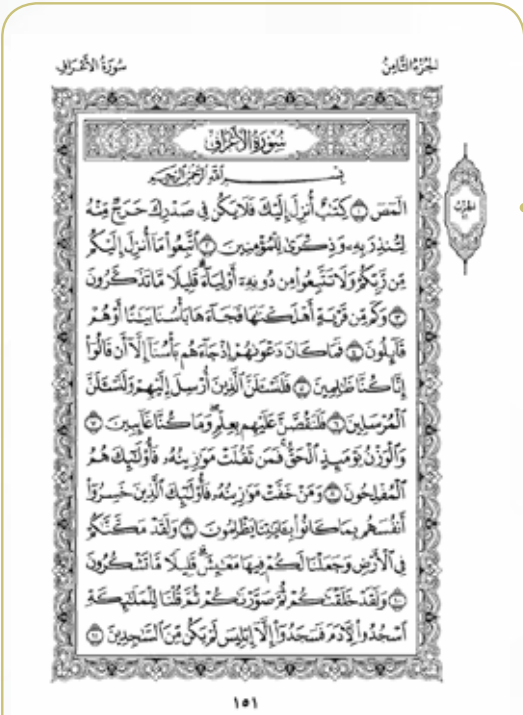 الجزء الثامن
سورة الأعراف
سُورَةُ الأَعْرَافِ
بِسْمِ اللَّهِ الرَّحْمَٰنِ الرَّحِيمِ
الٓمٓصٓ ١ كِتَٰبٌ أُنزِلَ إِلَيْكَ فَلَا يَكُن فِى صَدْرِكَ حَرَجٌ مِّنْهُ
لِتُنذِرَ بِهِۦ وَذِكْرَىٰ لِلْمُؤْمِنِينَ ٢ ٱتَّبِعُوا۟ مَآ أُنزِلَ إِلَيْكُم
مِّن رَّبِّكُمْ وَلَا تَتَّبِعُوا۟ مِن دُونِهِۦٓ أَوْلِيَآءَ ۗ قَلِيلًا مَّا تَذَكَّرُونَ
٣ وَكَم مِّن قَرْيَةٍ أَهْلَكْنَٰهَا فَجَآءَهَا بَأْسُنَا بَيَٰتًا أَوْ هُمْ
قَآئِلُونَ ٤ فَمَا كَانَ دَعْوَىٰهُمْ إِذْ جَآءَهُم بَأْسُنَآ إِلَّآ أَن قَالُوٓا۟
إِنَّا كُنَّا ظَٰلِمِينَ ٥ فَلَنَسْـَٔلَنَّ ٱلَّذِينَ أُرْسِلَ إِلَيْهِمْ وَلَنَسْـَٔلَنَّ
ٱلْمُرْسَلِينَ ٦ فَلَنَقُصَّنَّ عَلَيْهِم بِعِلْمٍ ۖ وَمَا كُنَّا غَآئِبِينَ ٧
وَٱلْوَزْنُ يَوْمَئِذٍ ٱلْحَقُّ ۚ فَمَن ثَقُلَتْ مَوَٰزِينُهُۥ فَأُو۟لَٰٓئِكَ هُمُ
ٱلْمُفْلِحُونَ ٨ وَمَنْ خَفَّتْ مَوَٰزِينُهُۥ فَأُو۟لَٰٓئِكَ ٱلَّذِينَ خَسِرُوٓا۟
أَنفُسَهُم بِمَا كَانُوا۟ بِـَٔايَٰتِنَا يَظْلِمُونَ ٩ وَلَقَدْ مَكَّنَّٰكُمْ
فِى ٱلْأَرْضِ وَجَعَلْنَا لَكُمْ فِيهَا مَعَٰيِشَ ۗ قَلِيلًا مَّا تَشْكُرُونَ
١٠ وَلَقَدْ خَلَقْنَٰكُمْ ثُمَّ صَوَّرْنَٰكُمْ ثُمَّ قُلْنَا لِلْمَلَٰٓئِكَةِ
ٱسْجُدُوا۟ لِـَٔادَمَ فَسَجَدُوٓا۟ إِلَّآ إِبْلِيسَ لَمْ يَكُن مِّنَ ٱلسَّٰجِدِينَ ١١
١٥١